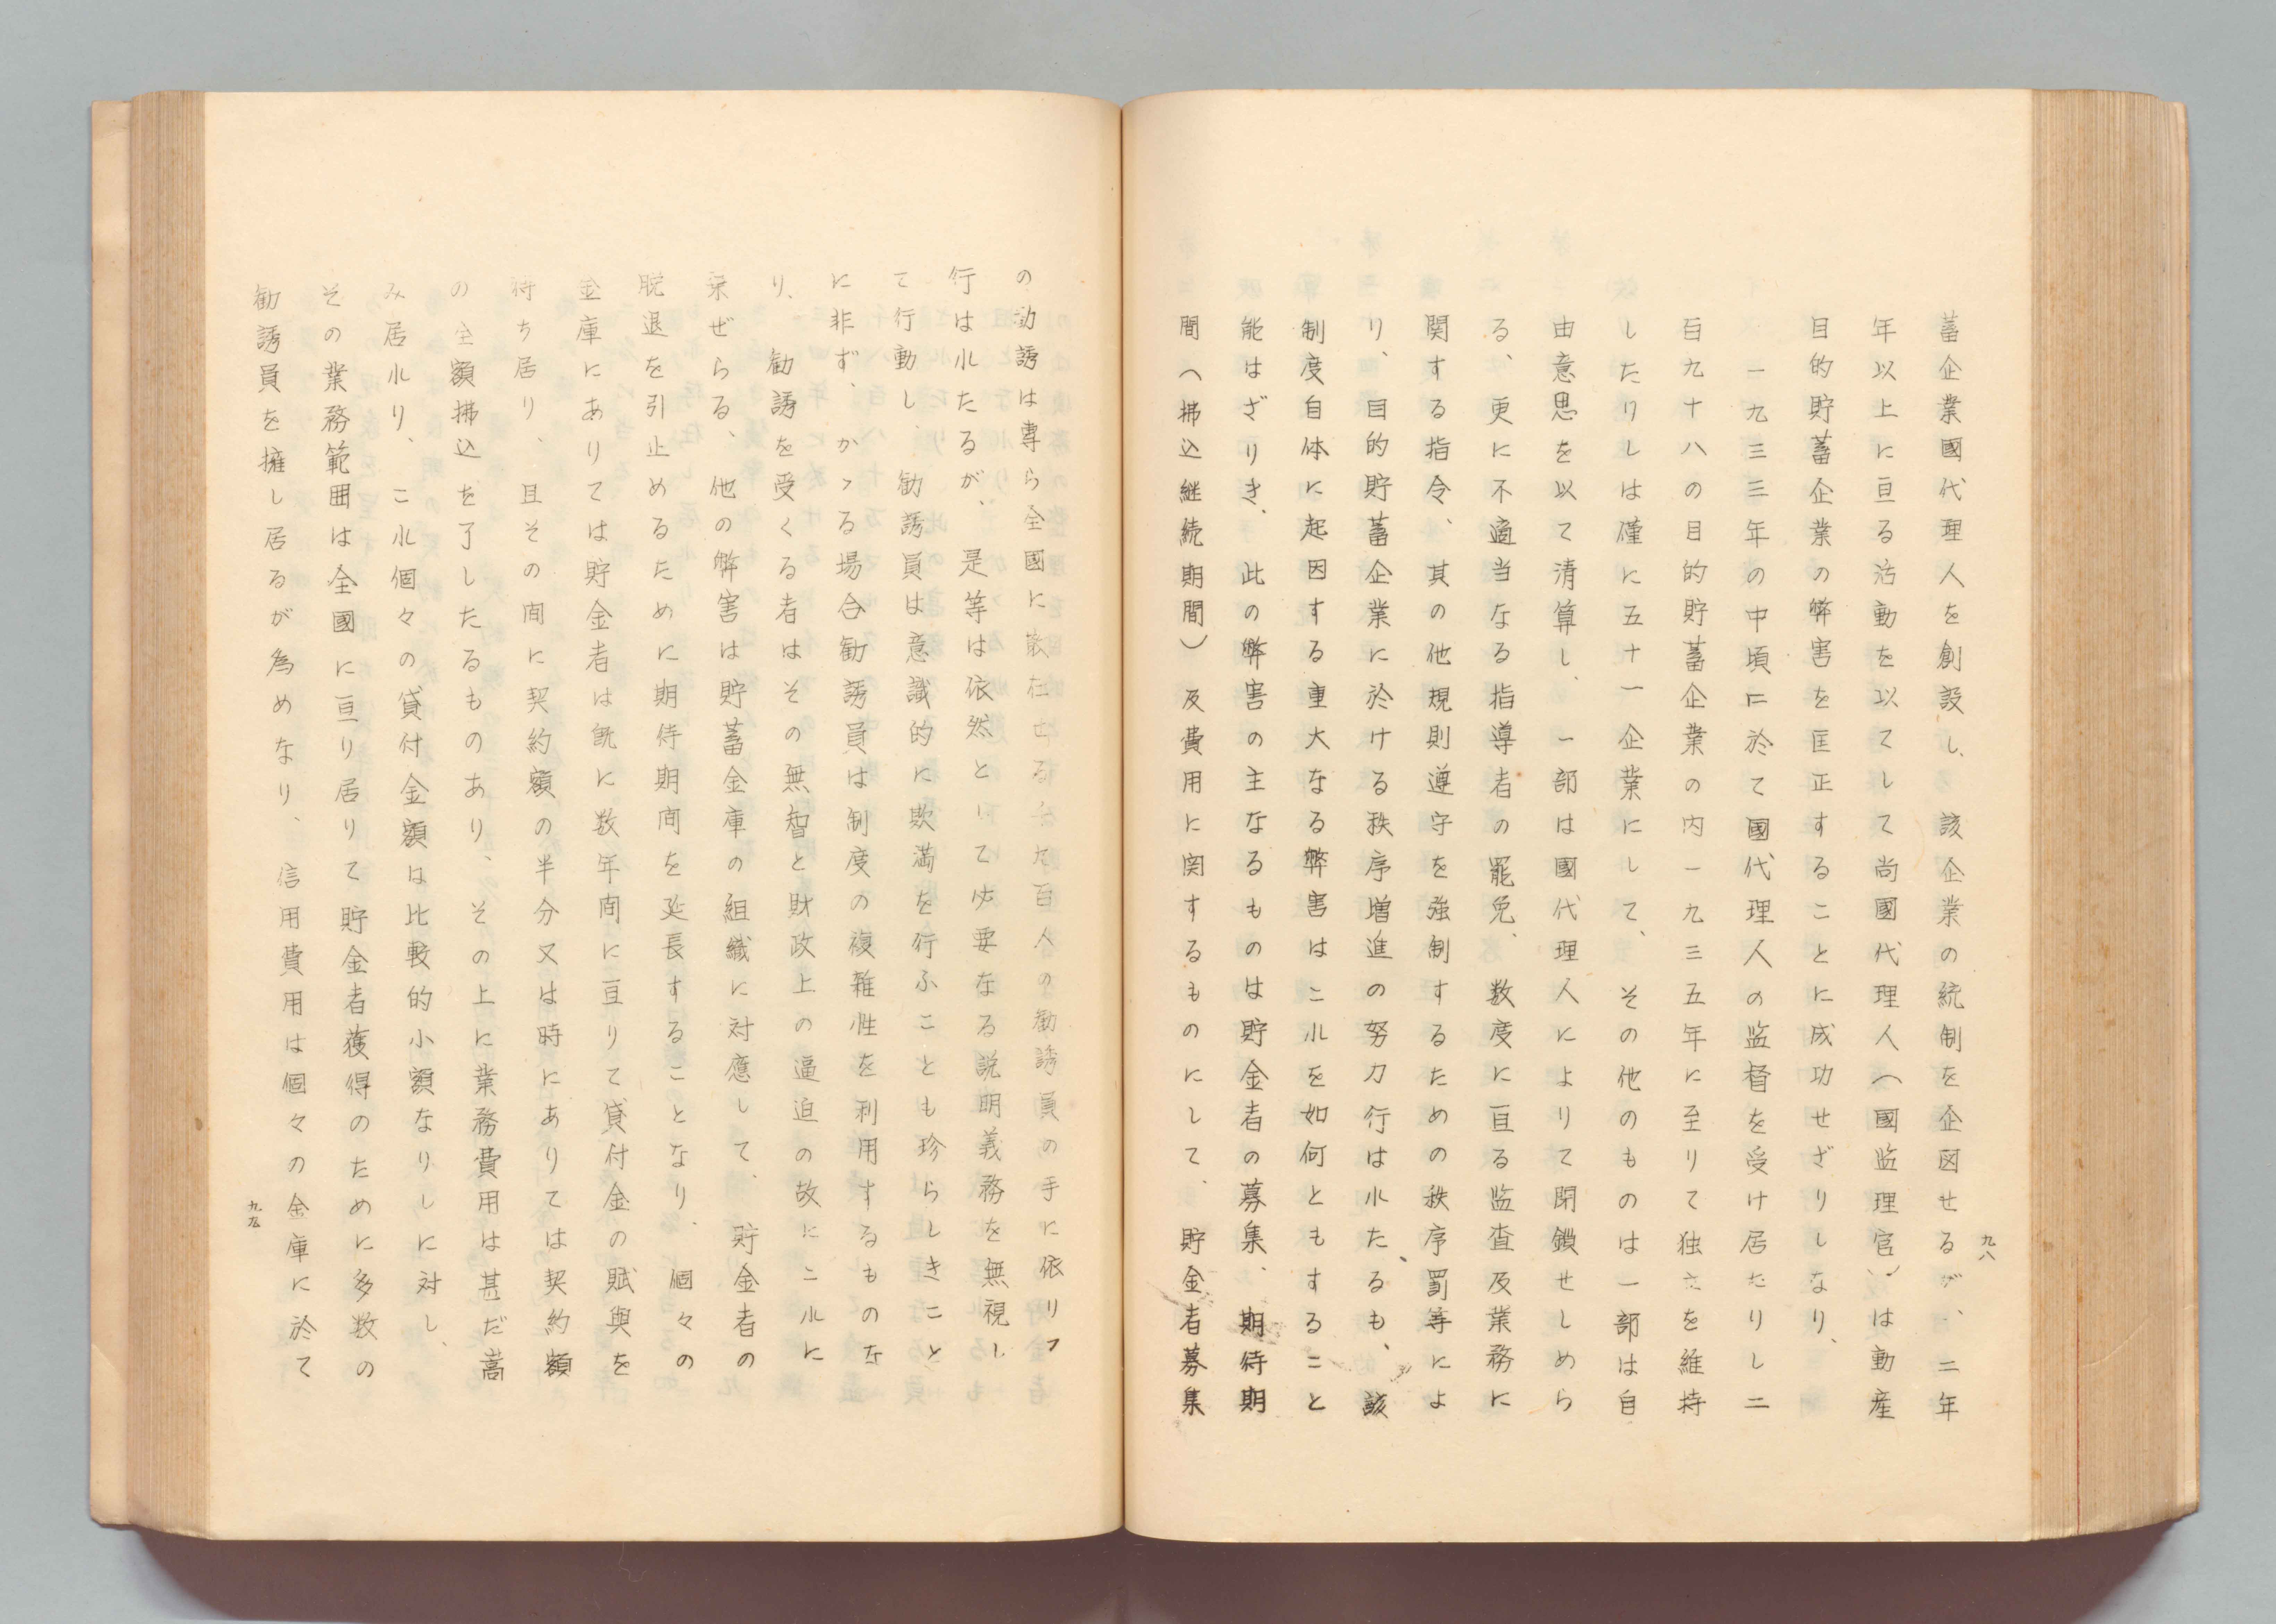 九八
蓄企業國代理人を創設し、該企業の統制を企図せるが、二年
年以上に亘る活動を以てして尚國代理人（國監理官）は動産
目的貯蓄企業の弊害を匡正することに成功せざりしなり、
一九三三年の中頃に於て國代理人の監督を受け居たりし二
百九十八の目的貯蓄企業の内一九三五年に至りて独立を維持
したりしは僅に五十一企業にして、その他のものは一部は自
由意思を以て清算し、一部は國代理人によりて閉鎖せしめら
る、更に不適当なる指導者の罷免、数度に亘る監査及業務に
関する指令、其の他規則遵守を強制するための秩序罰等によ
り、目的貯蓄企業に於ける秩序増進の努力行はれたるも、該
制度自体に起因する重大なる弊害はこれを如何ともすること
能はざりき、此の弊害の主なるものは貯金者の募集、期待期
間（拂込継続期間）及費用に関するものにして、貯金者募集
の勧誘は専ら全國に散在せる 百人の勧誘員の手に依りて
行はれたるが、是等は依然として必要なる説明義務を無視し
て行動し、勧誘員は意識的に欺満を行ふことも珍らしきこと
に非ず、かゝる場合勧誘員は制度の複雑性を利用するものな
り、勧誘を受くる者はその無智と財政上の逼迫の故にこれに
乗ぜらる、他の弊害は貯蓄金庫の組織に対應して、貯金者の
脱退を引止めるために期待期間を延長することなり、個々の
金庫にありては貯金者は既に数年間に亘りて貸付金の賦與を
待ち居り、且その間に契約額の半分又は時にありては契約額
の全額拂込を了したるものあり、その上に業務費用は甚だ嵩
み居れり、これ個々の貸付金額は比較的小額なりしに対し、
その業務範囲は全國に亘り居りて貯金者獲得のために多数の
勧誘員を擁し居るが為めなり、信用費用は個々の金庫に於て
九九